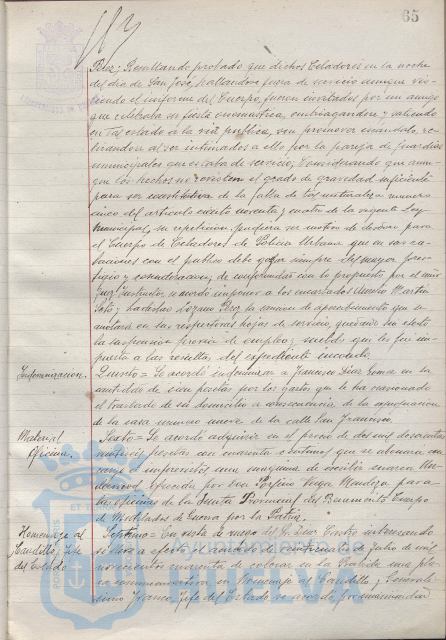 65
Perez; Resultando probado que dichos Celadores en la noche
del dia de San José, hallandose fuera de servicio aunque vis-
tiendo el uniforme del Cuerpo, fueron invitados por un amigo
que celebraba su fiesta onomástica, embriagandose y saliendo
en tal estado a la via pública, sin promover escandalo, re-
tirandose al ser intimados a ello por la pareja de guardias
municipales que estaba de servicio; Considerando que aun-
que los hechos no revisten el grado de gravedad suficiente
para ser constitutiva de la falta de tal naturaleza numero
cinco del articulo ciento noventa y cuatro de la vigente Ley
Municipal, su repeticion pudiera ser motivo de desdoro para
el Cuerpo de Celadores de Policia Urbana que en sus re-
laciones con el publico debe gozar siempre del mayor pres-
tigio y consideracion, de conformidad con lo propuesto por el señor
Juez Instructor, se acordó imponer a los encartados Aurelio Martin
Soto y Ladislao Lozano Perez la sancion de apercibimiento que se
anotará en sus respectivas hojas de servicio, quedando sin efecto
la suspension previa de empleo y sueldo que les fué im-
puesta a las resultas del expediente incoado.
Indemnizacion. Quinto = Se acordó indemnizar a Francisco Diaz en la
cantidad de cien pesetas por los gastos que le ha ocasionado
el traslado de su domicilio a consecuencia de la expropiacion
de la casa numero nueve de la calle San Francisco.
Material Oficina. Sexto = Se acordó adquirir en el precio de dos mil doscientas
pesetas con cuarenta centimos que se abonara con
cargo a imprevistos una maquina de escribir marca
ofrecida por Don Porfirio Vega Mendoza para
las oficinas de la Junta Provincial del Benemerito Cuerpo
de Mutilados de Guerra por la Patria.
Homenaje al Caudillo, Jefe del Estado Septimo = En vista de ruego del Sr. Diaz interesando
se lleve a efecto el acuerdo de veinticuatro de Julio de mil
novecientos cuarenta de colocar en una pla-
ca conmemorativa en homenaje al Caudillo y Genera-
lisimo Franco, Jefe del Estado se acordó por unanimidad
Ayuntamiento